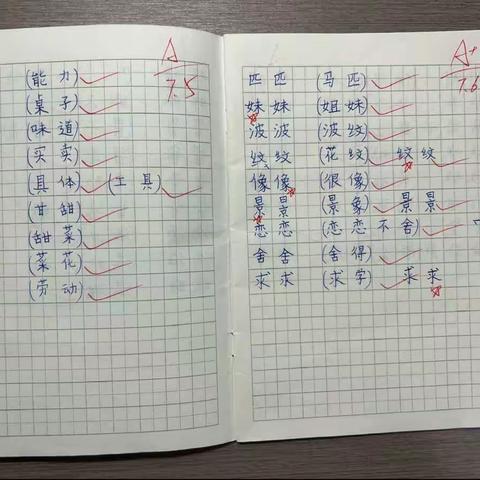 A
7.5
(能力)
(桌子)
(味道)
(买卖)
(具体) (工具)
(甘甜)
(甜菜)
(菜花)
(劳动)
A+
7.6
匹匹 (马匹)
妹妹 (姐妹)
波波 (波纹)
纹纹 (花纹) 纹纹
像像 (很像)
景景 (景象) 景景
恋恋 (恋恋不舍)
舍舍 (舍得)
求求 (求学) 求求